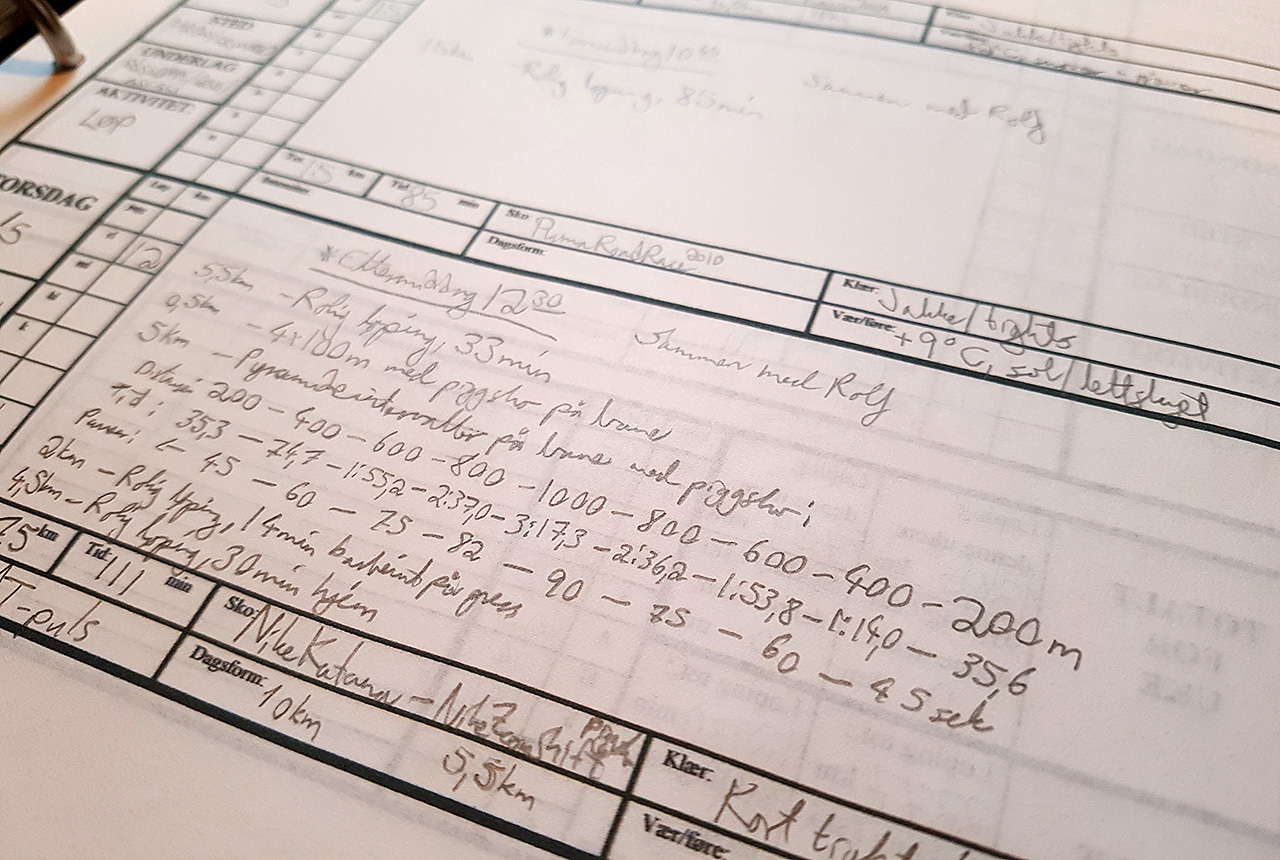 STED
UNDERLAG
AKTIVITET:
LØP
Klær: Jakke/tights
*Formiddag 10
15km Rolig løping, 85min Sammen med Rolf
Tot. 15 km Tid: 85 min Sko: Puma RoadRace 2010 Klær: Jakke/tights
Dagsform: Vær/føre: +9°C, sol/lettskyet
TORSDAG
/5
12
*Ettermiddag 12 30
Sammen med Rolf
5,5km - Rolig løping, 33min
0,5km - 4x100m med piggsko på bane
5km - Pyramideintervaller på bane med piggsko:
Distanse: 200 - 400 - 600 - 800 - 1000 - 800 - 600 - 400 - 200m
Tid: 35,3 - 74,7 - 1:55,2 - 2:37,0 - 3:17,3 - 2:36,2 - 1:53,8 - 1:14,0 - 35,6
Pause: 45 - 60 - 75 - 82 - 90 - 75 - 60 - 45 sek
2km - Rolig løping, 14min barbeint på gress
4,5km - Rolig løping, 30min hjem
km Tid: 111 min Sko: Nike Katana - Nike Zoom Klær: Kort
T-puls Dagsform: 10km 5,5km Vær/føre:
TOTALT
FOR
UKE